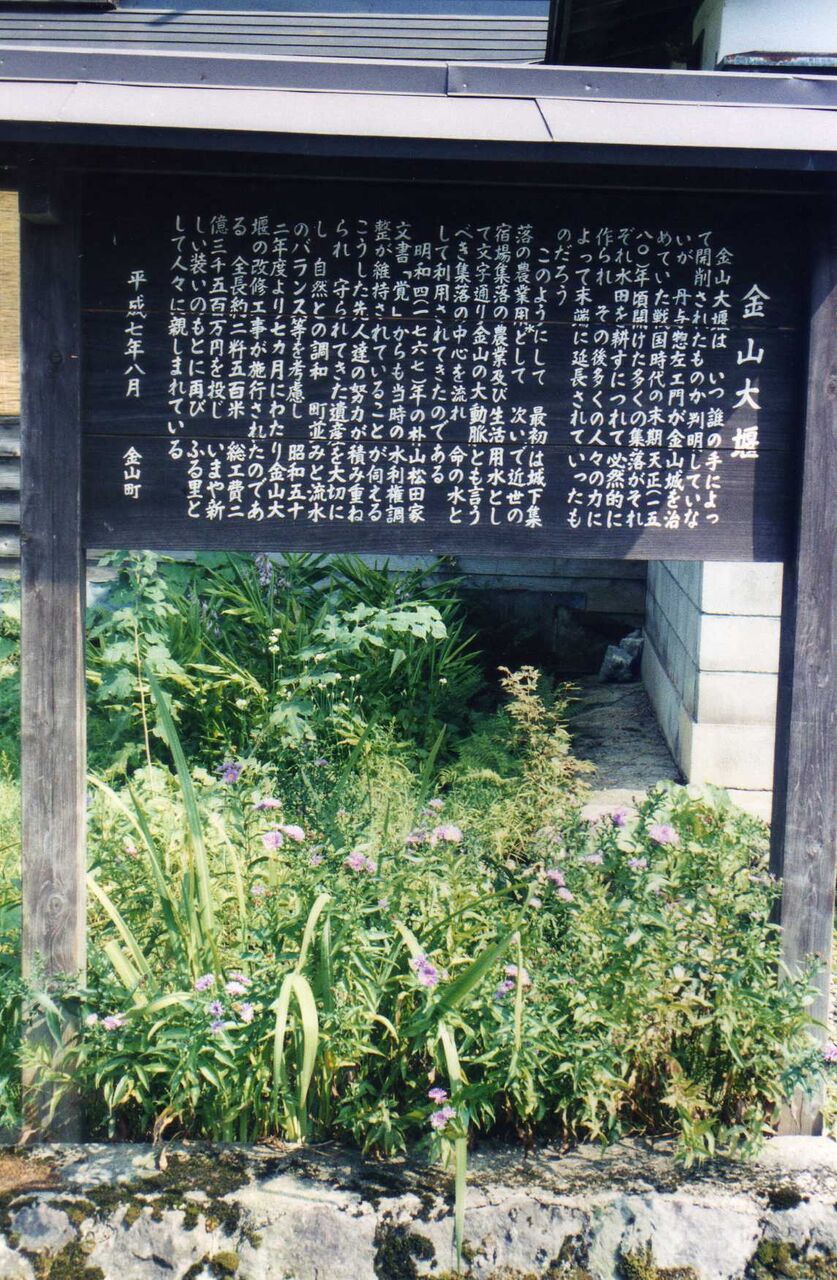 金山大堰
金山大堰は いつ 誰の手によっ
て開削されたものか判明していな
いが 丹与惣左エ門が金山城を治
めていた戦国時代の末期天正(一五
八〇)年頃開けた多くの集落がそれ
ぞれ水田を耕すにつれて必然的に
作られ その後多くの人々の力に
よって末端に延長されていったも
のだろう
このようにして 最初は城下集
落の農業用水として 次いで近世の
宿場集落の農業及び生活用水とし
て文字通り金山の大動脈とも言う
べき集落の中心を流れ 命の水と
して利用されてきたのである
明和四(一七六七)年の朴山松田家
文書「覚」からも当時の水利権調
整が維持されていることが伺える
こうした先人達の努力が積み重ね
られ 守られてきた遺産を大切に
し 自然との調和 町並みと流水
のバランス等を考慮し 昭和五十
二年度より七カ月にわたり金山大
堰の改修工事が施行されたのであ
る 全長約二粁五百米 総工費二
億三千五百万円を投じ いまや新
しい装いのもとに再び ふる里と
して人々に親しまれている
平成七年八月 金山町